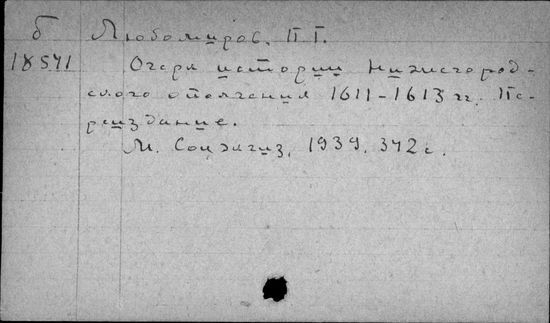 б Любомиров, П.Г.
18571 Очерк истории Нижегород-
ского ополчения 1611-1613 гг. Пе-
реиздание.
М. Соцэкгиз, 1939. 342 с.